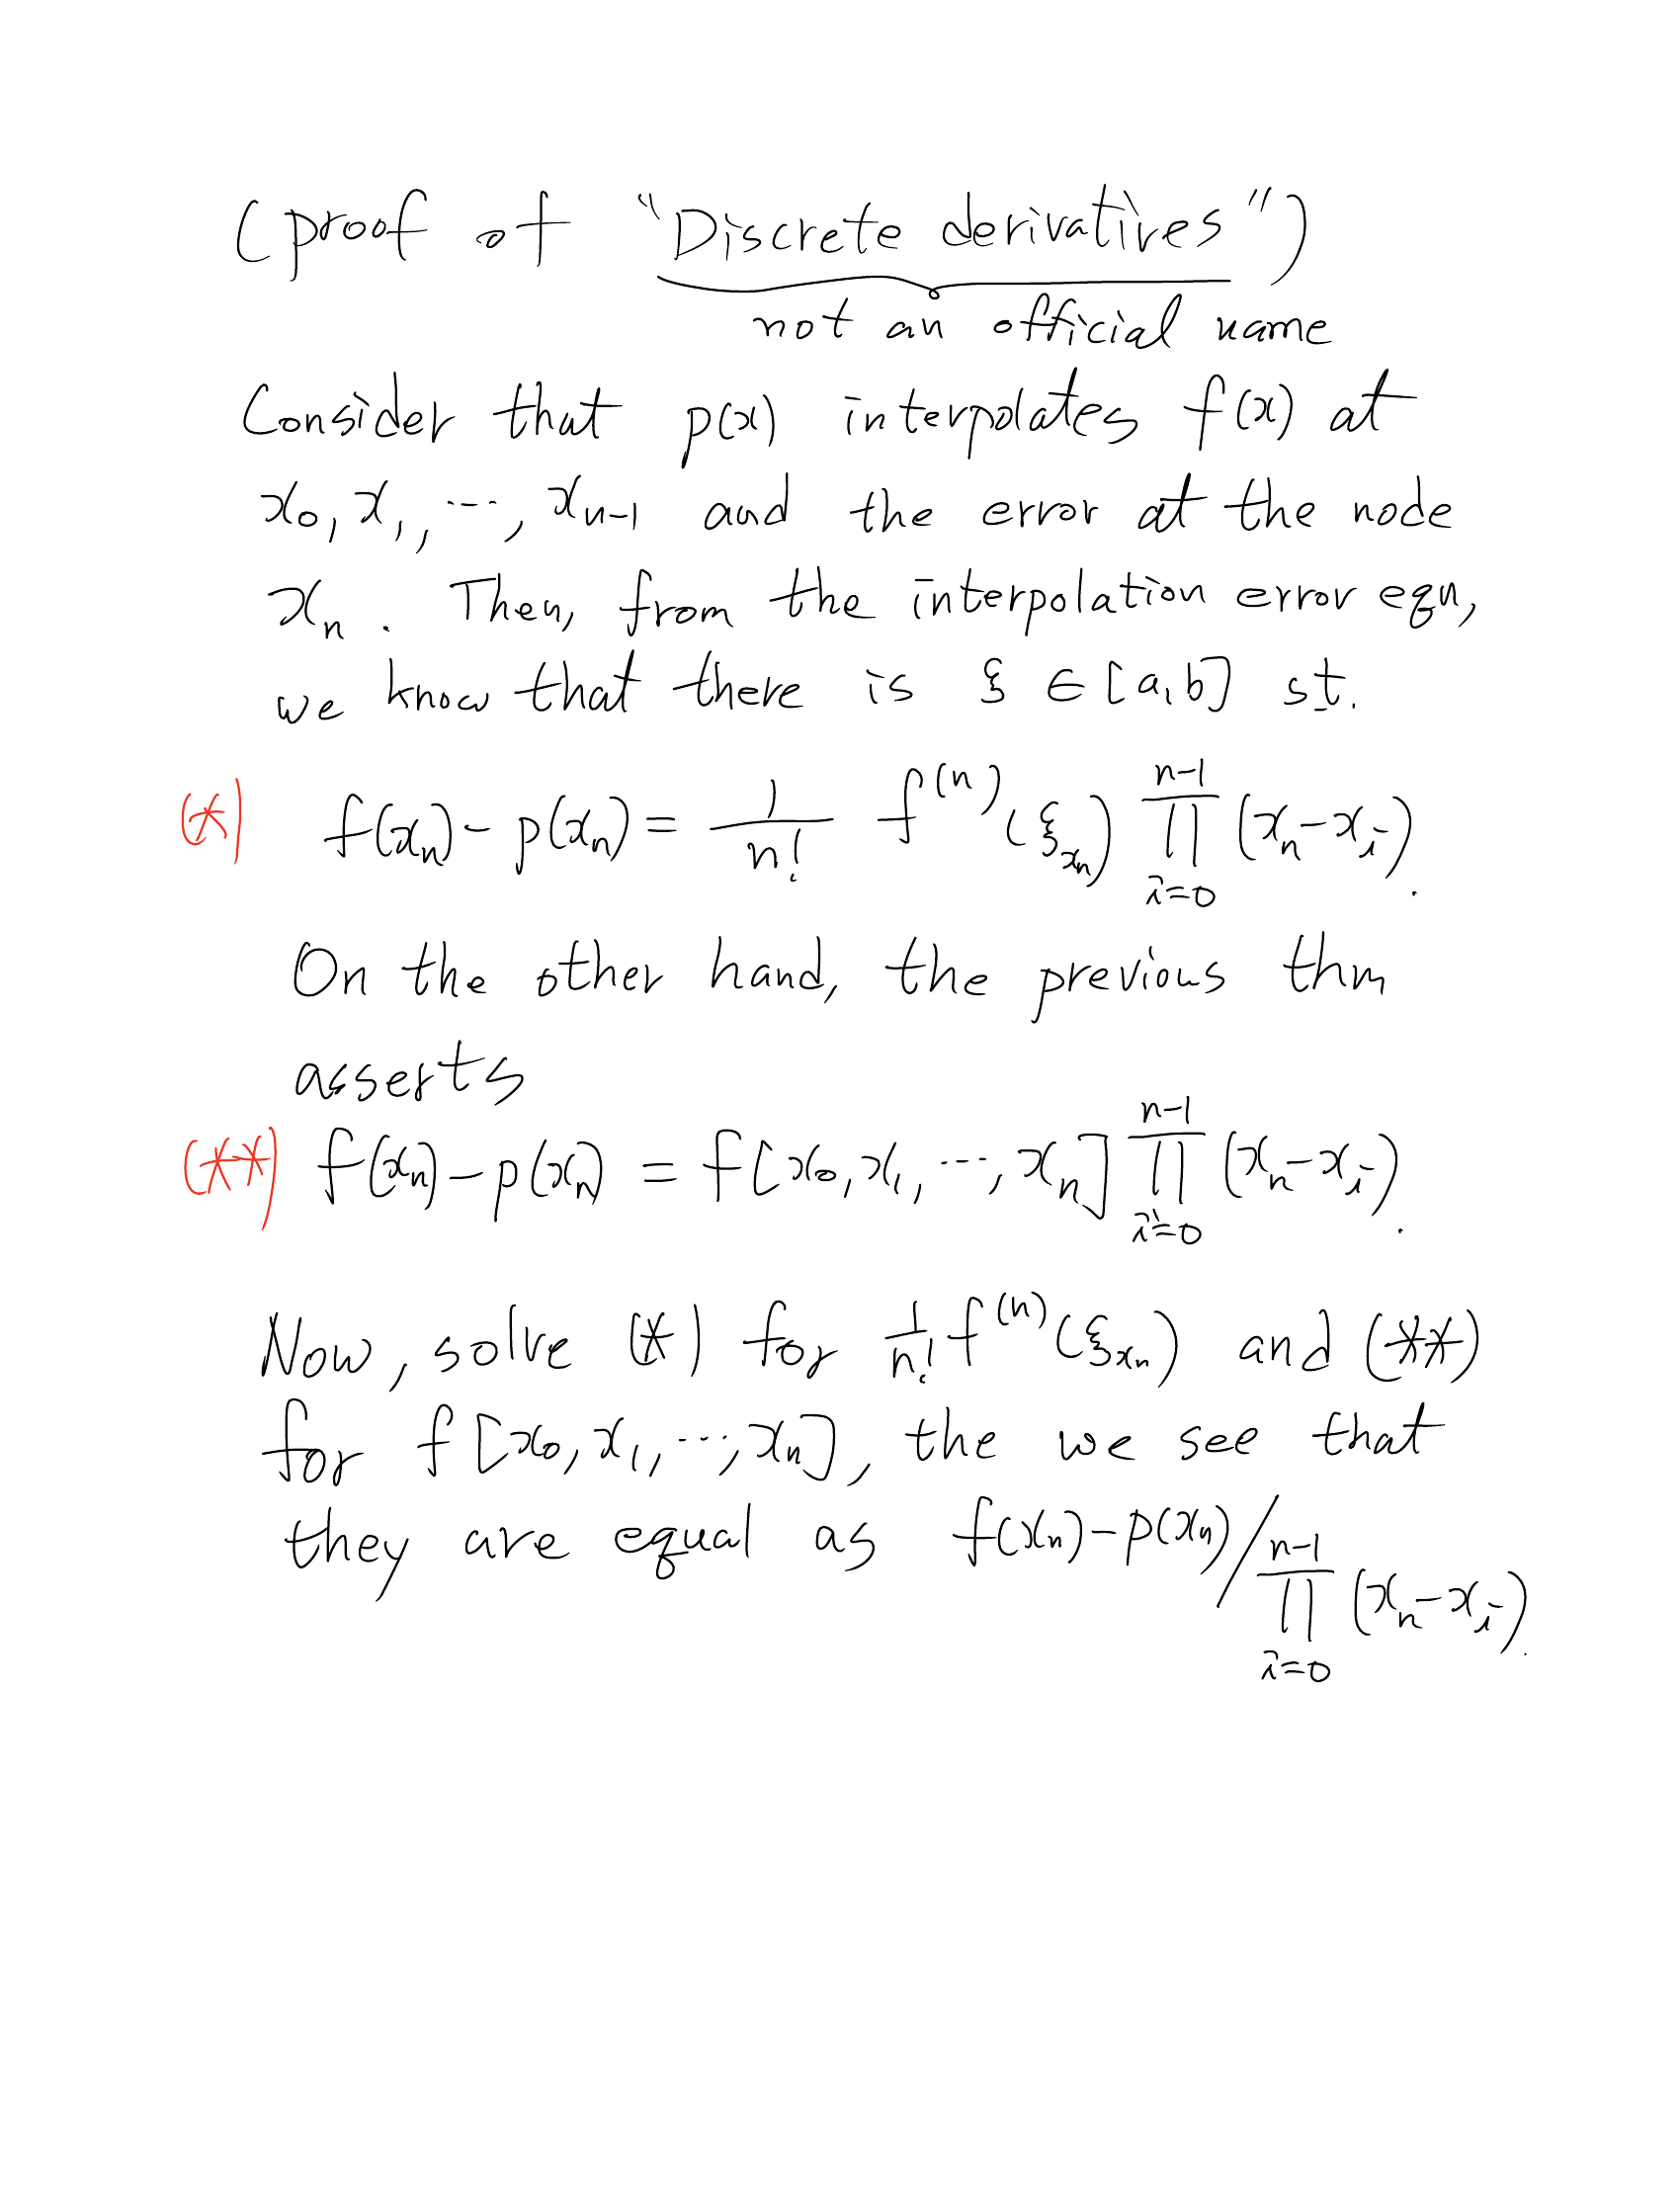 (proof of "Discrete derivatives")
not an official name
Consider that p(x) interpolates f(x) at
x₀, x₁, ⋯, xₙ₋₁ and the error at the node
xₙ. Then, from the interpolation error eqn,
we know that there is ξ ∈ [a,b] st.
(*) f(xₙ) - p(xₙ) = 1/n! f⁽ⁿ⁾(ξ_{xₙ}) ∏_{i=0}^{n-1} (xₙ - xᵢ).
On the other hand, the previous thm
asserts
(**) f(xₙ) - p(xₙ) = f[x₀, x₁, ⋯, xₙ] ∏_{i=0}^{n-1} (xₙ - xᵢ).
Now, solve (*) for 1/n! f⁽ⁿ⁾(ξ_{xₙ}) and (**)
for f[x₀, x₁, ⋯, xₙ], the we see that
they are equal as f(xₙ) - p(xₙ) / ∏_{i=0}^{n-1} (xₙ - xᵢ).